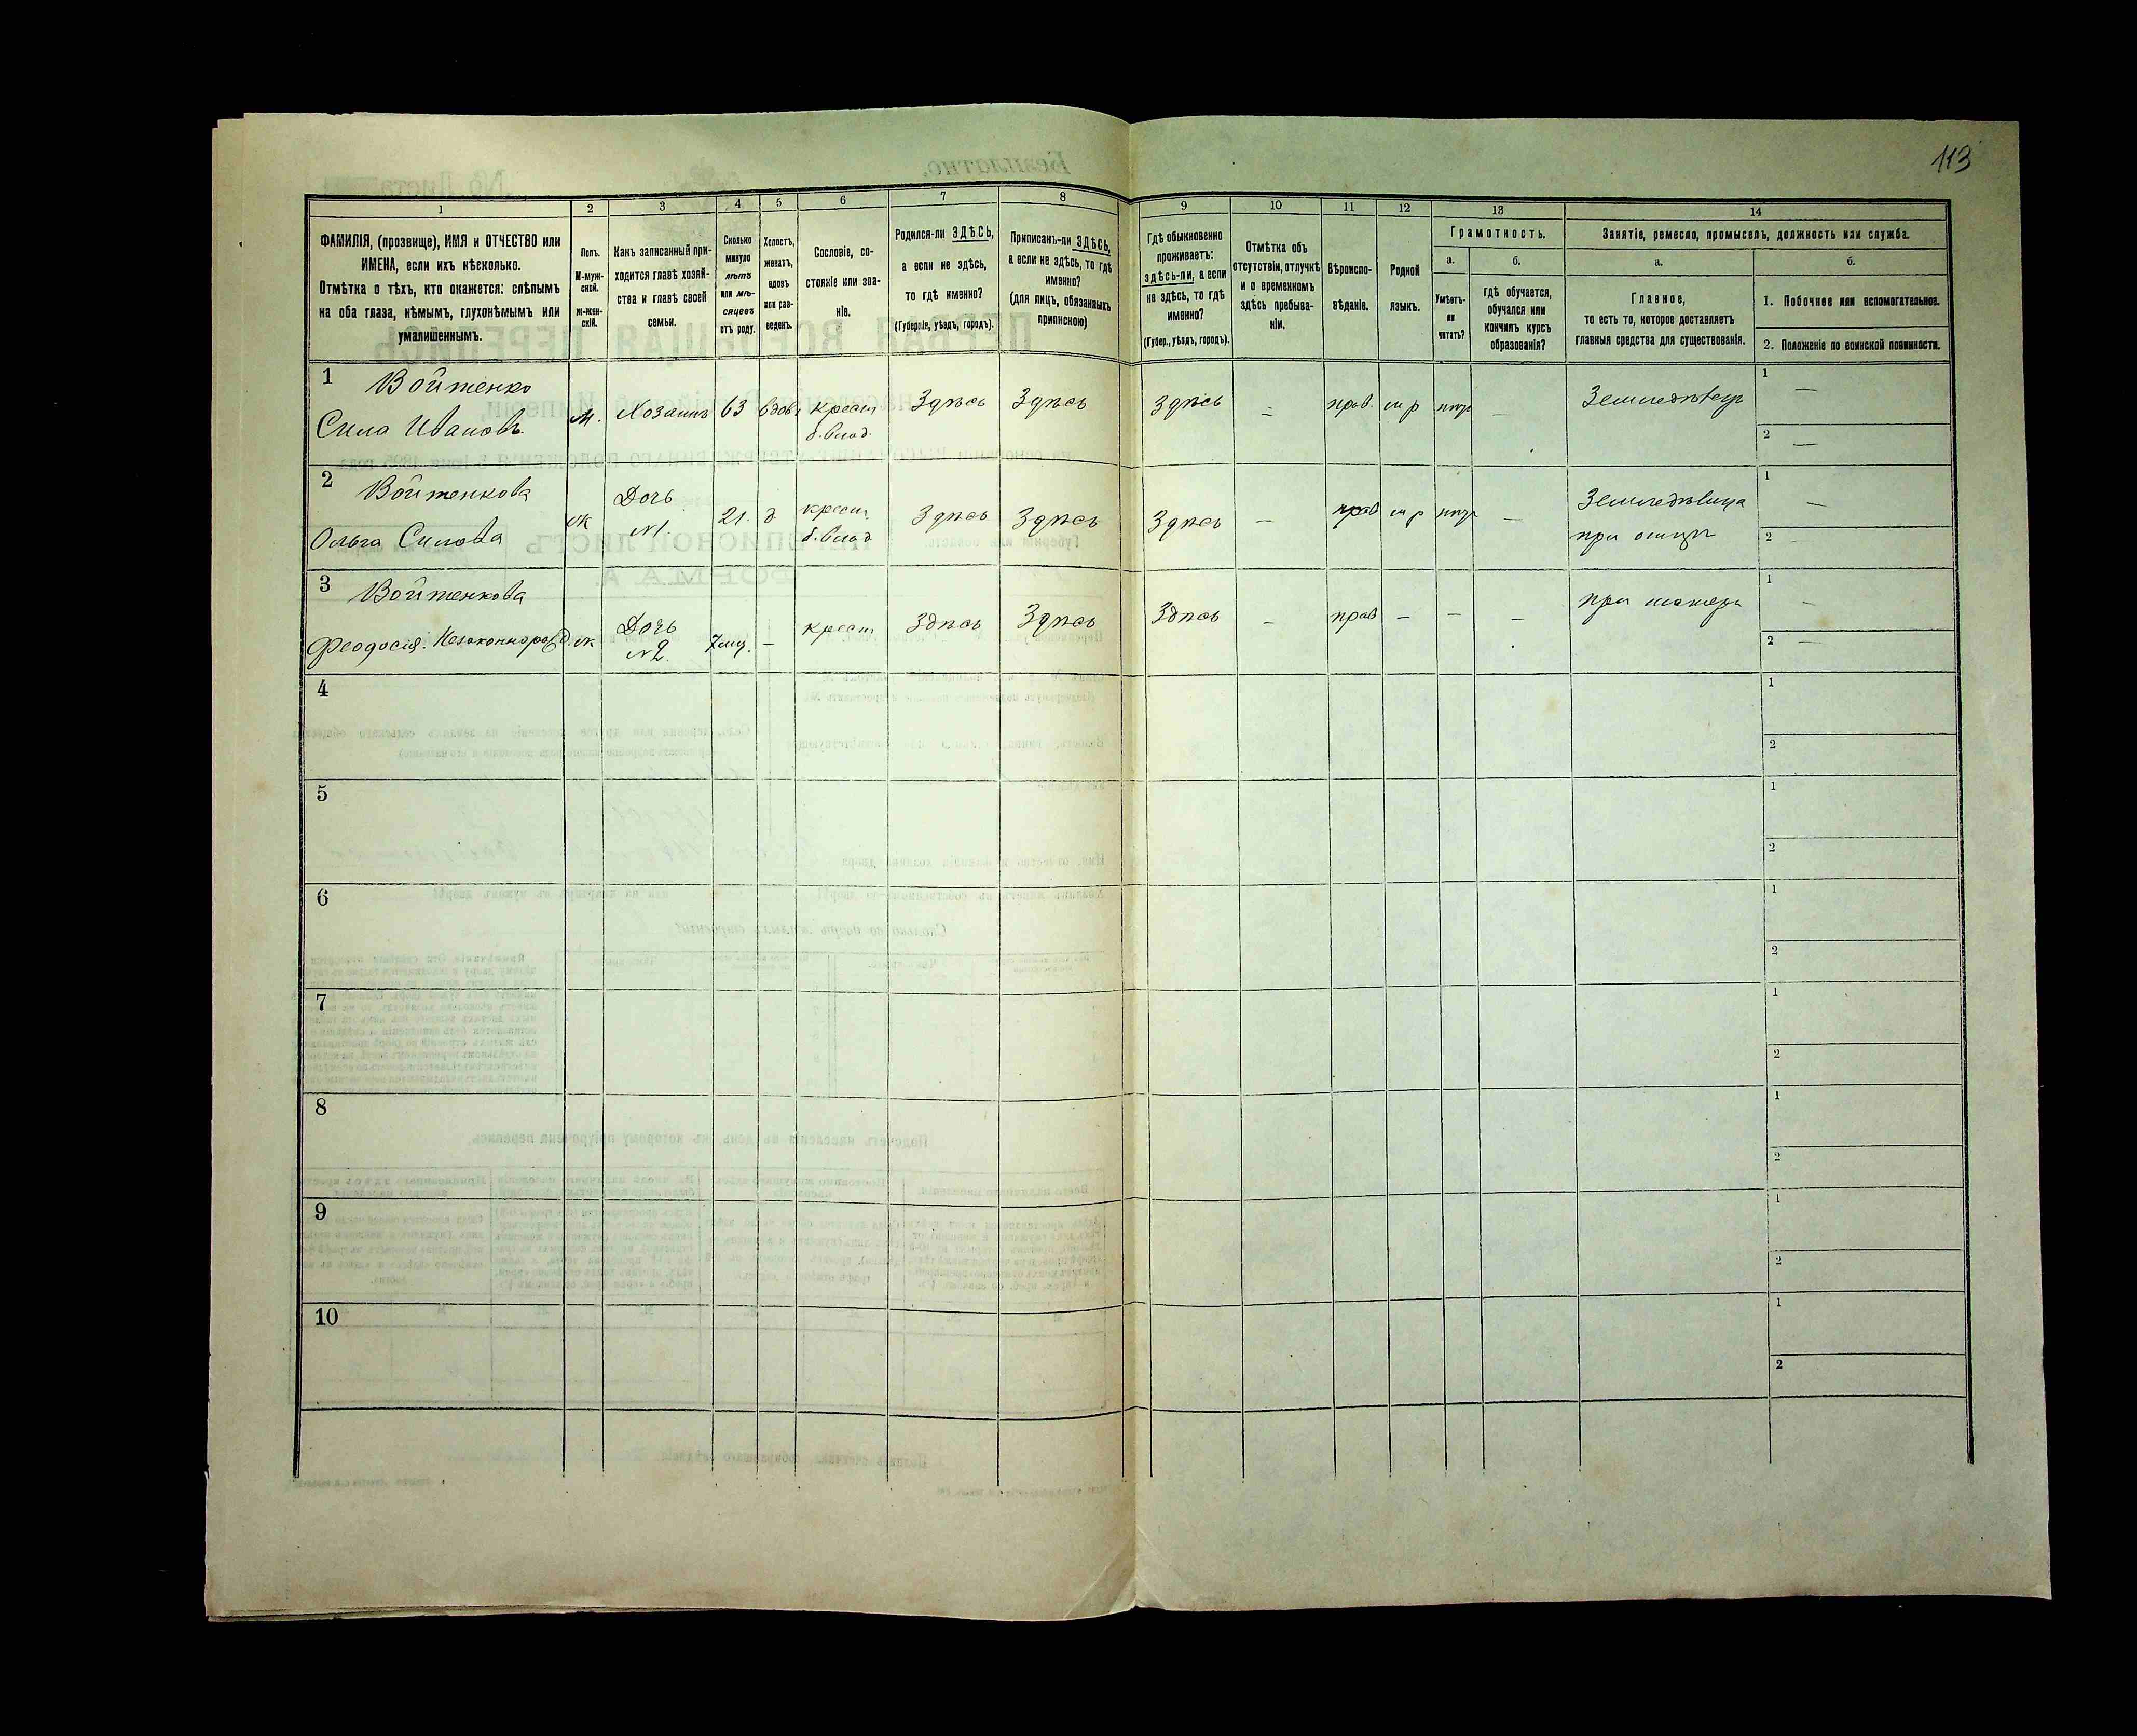 113
1
2
3
4
5
6
7
8
9
10
11
12
13
14
ФАМИЛІЯ, (прозвище), ИМЯ и ОТЧЕСТВО или
ИМЕНА, если ихъ нѣсколько.
Отмѣтка о тѣхъ, кто окажется: слѣпымъ
на оба глаза, нѣмымъ, глухонѣмымъ или
умалишеннымъ.
Полъ.
М-муж-
ской.
Ж-жен-
скій.
Какъ записанный при-
ходится главѣ хозяй-
ства и главѣ своей
семьи.
Сколько
минуло
лѣтъ
или мѣ-
сяцевъ
отъ роду.
Холостъ,
женатъ,
вдовъ
или раз-
веденъ.
Сословіе, со-
стояніе или зва-
ніе.
Родился-ли ЗДѢСЬ,
а если не здѣсь,
то гдѣ именно?
(Губернія, уѣздъ, городъ).
Приписанъ-ли ЗДѢСЬ,
а если не здѣсь, то гдѣ
именно?
(для лицъ, обязанныхъ
припискою)
Гдѣ обыкновенно
проживаетъ:
здѣсь-ли, а если
не здѣсь, то гдѣ
именно?
(Губер., уѣздъ, городъ).
Отмѣтка объ
отсутствіи, отлучкѣ
и о временномъ
здѣсь пребыва-
ніи.
Вѣроиспо-
вѣданіе.
Родной
языкъ.
Грамотность.
а.
Умѣетъ-
ли
читать?
б.
гдѣ обучается,
обучался или
кончилъ курсъ
образованія?
Занятіе, ремесло, промыселъ, должность или служба.
а.
Главное,
то есть то, которое доставляетъ
главныя средства для существованія.
б.
1. Побочное или вспомогательное.
2. Положеніе по воинской повинности.
1 Войтенко
Сила Ивановъ.
м.
Хозаинъ
63
вдов.
крест
б. влад.
Здѣсь
Здѣсь
Здѣсь
—
прав.
м р
—
1 —
2 —
2 Войтенкова
Ольга Силова
ж
Дочь
№1.
21.
д.
крест.
б. влад
Здѣсь
Здѣсь
Здѣсь
—
прав
м р
—
Земледѣлица
при отцѣ
1 —
2 —
3 Войтенкова
Феодосія. Незаконнорожд.
ж
Дочь
№2.
7 мѣ.
—
крест
Здѣсь
Здѣсь
Здѣсь
—
прав
—
—
—
при матери
1 —
2 —
4
1
2
5
1
2
6
1
2
7
1
2
8
1
2
9
1
2
10
1
2